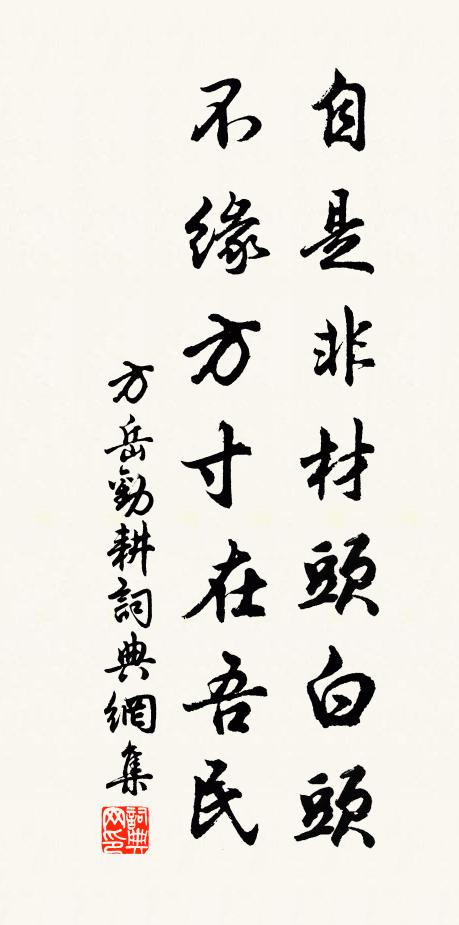 自是非材頭白頭
不緣方寸在吾民
方岳勸耕詞典網集
詞典
网印